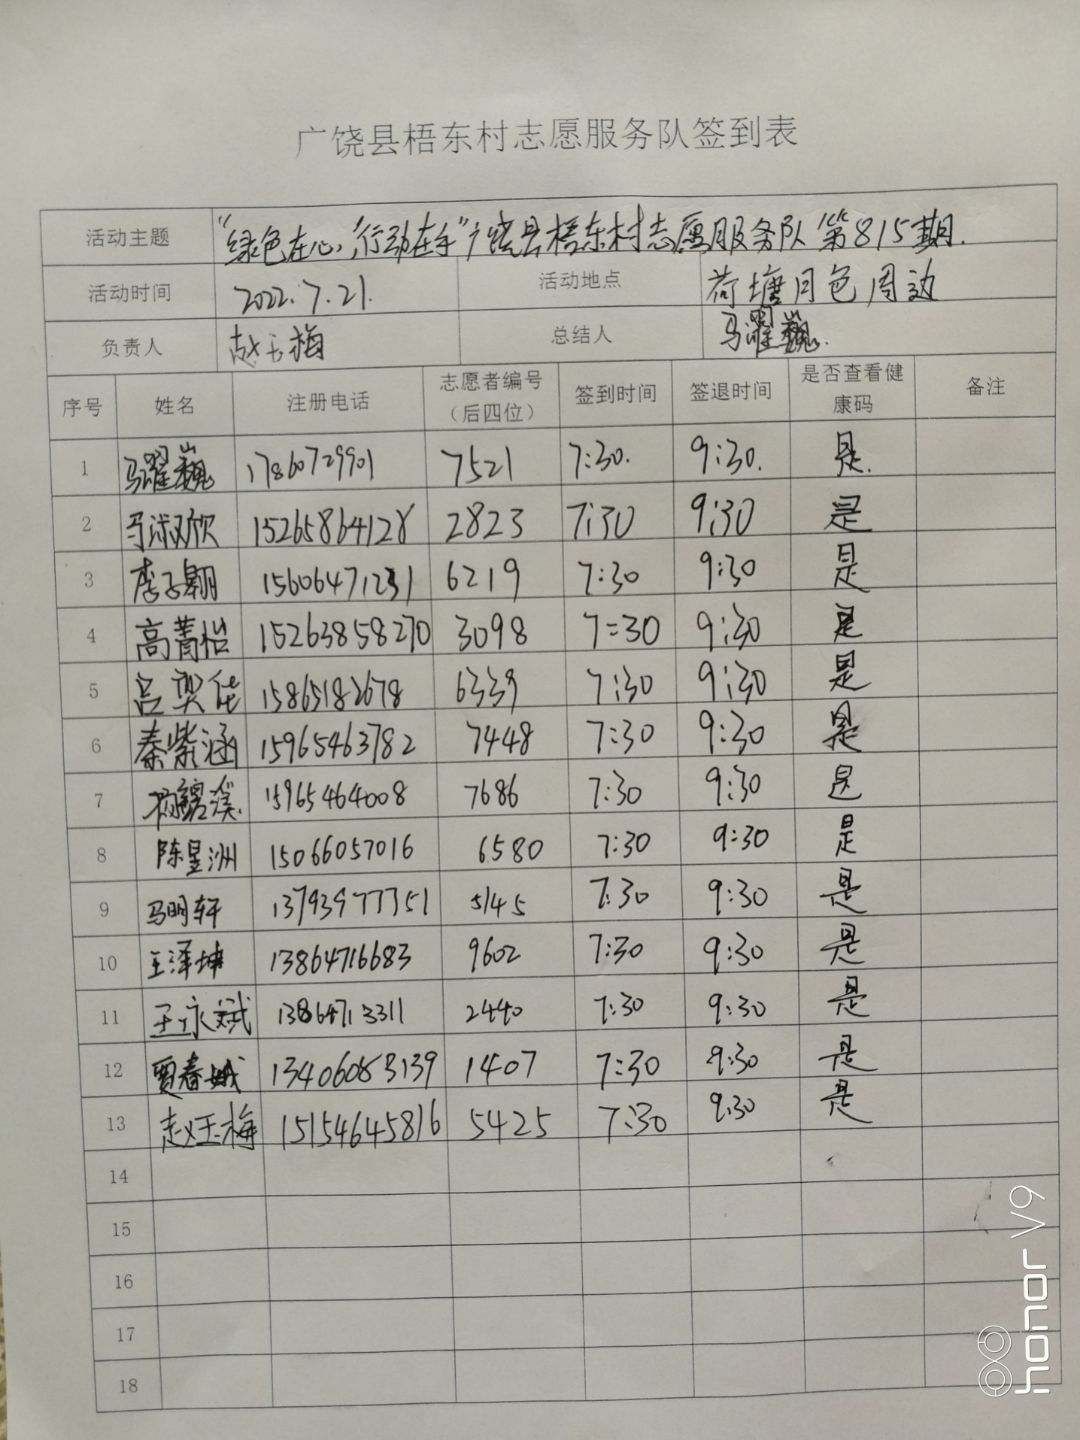 广饶县梧东村志愿服务队签到表
活动主题 “绿色在心,行动在手”广饶县梧东村志愿服务队第815期.
活动时间 2022.7.21. 活动地点 荷塘月色周边
负责人 赵玉梅 总结人 马濯巍.
序号 姓名 注册电话 志愿者编号(后四位) 签到时间 签退时间 是否查看健康码 备注
1 马濯巍 17860729901 7521 7:30. 9:30. 是.
2 15265864128 2823 7:30 9:30 是
3 李子翱 15606471231 6219 7:30 9:30 是
4 高菁怡 15263858270 3098 7:30 9:30 是
5 吕奕佳 15865182678 6339 7:30 9:30 是
6 秦紫涵 15965463782 7448 7:30 9:30 是
7 15965464008 7686 7:30 9:30 是
8 陈星洲 15066057016 6580 7:30 9:30 是
9 马明轩 13793977351 5145 7:30 9:30 是
10 王泽坤 13864716683 9602 7:30 9:30 是
11 王永斌 13864713311 2440 7:30 9:30 是
12 贾春娥 13406083139 1407 7:30 9:30 是
13 赵玉梅 15154645816 5425 7:30 9:30 是
14
15
16
17
18
honor V9